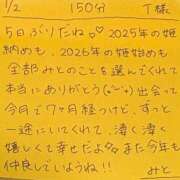 1/2 150分 T様
5日ぶりだね♡ 2025年の姫
納めも、2026年の姫始めも
全部みとのことを選んでくれて
本当にありがとう(⌒⌒)出会って
今月で7ヶ月経つけど、ずっと
一途にいてくれて、凄く凄く
嬉しくて幸せだよ♪また今年も
仲良していようね!! みと